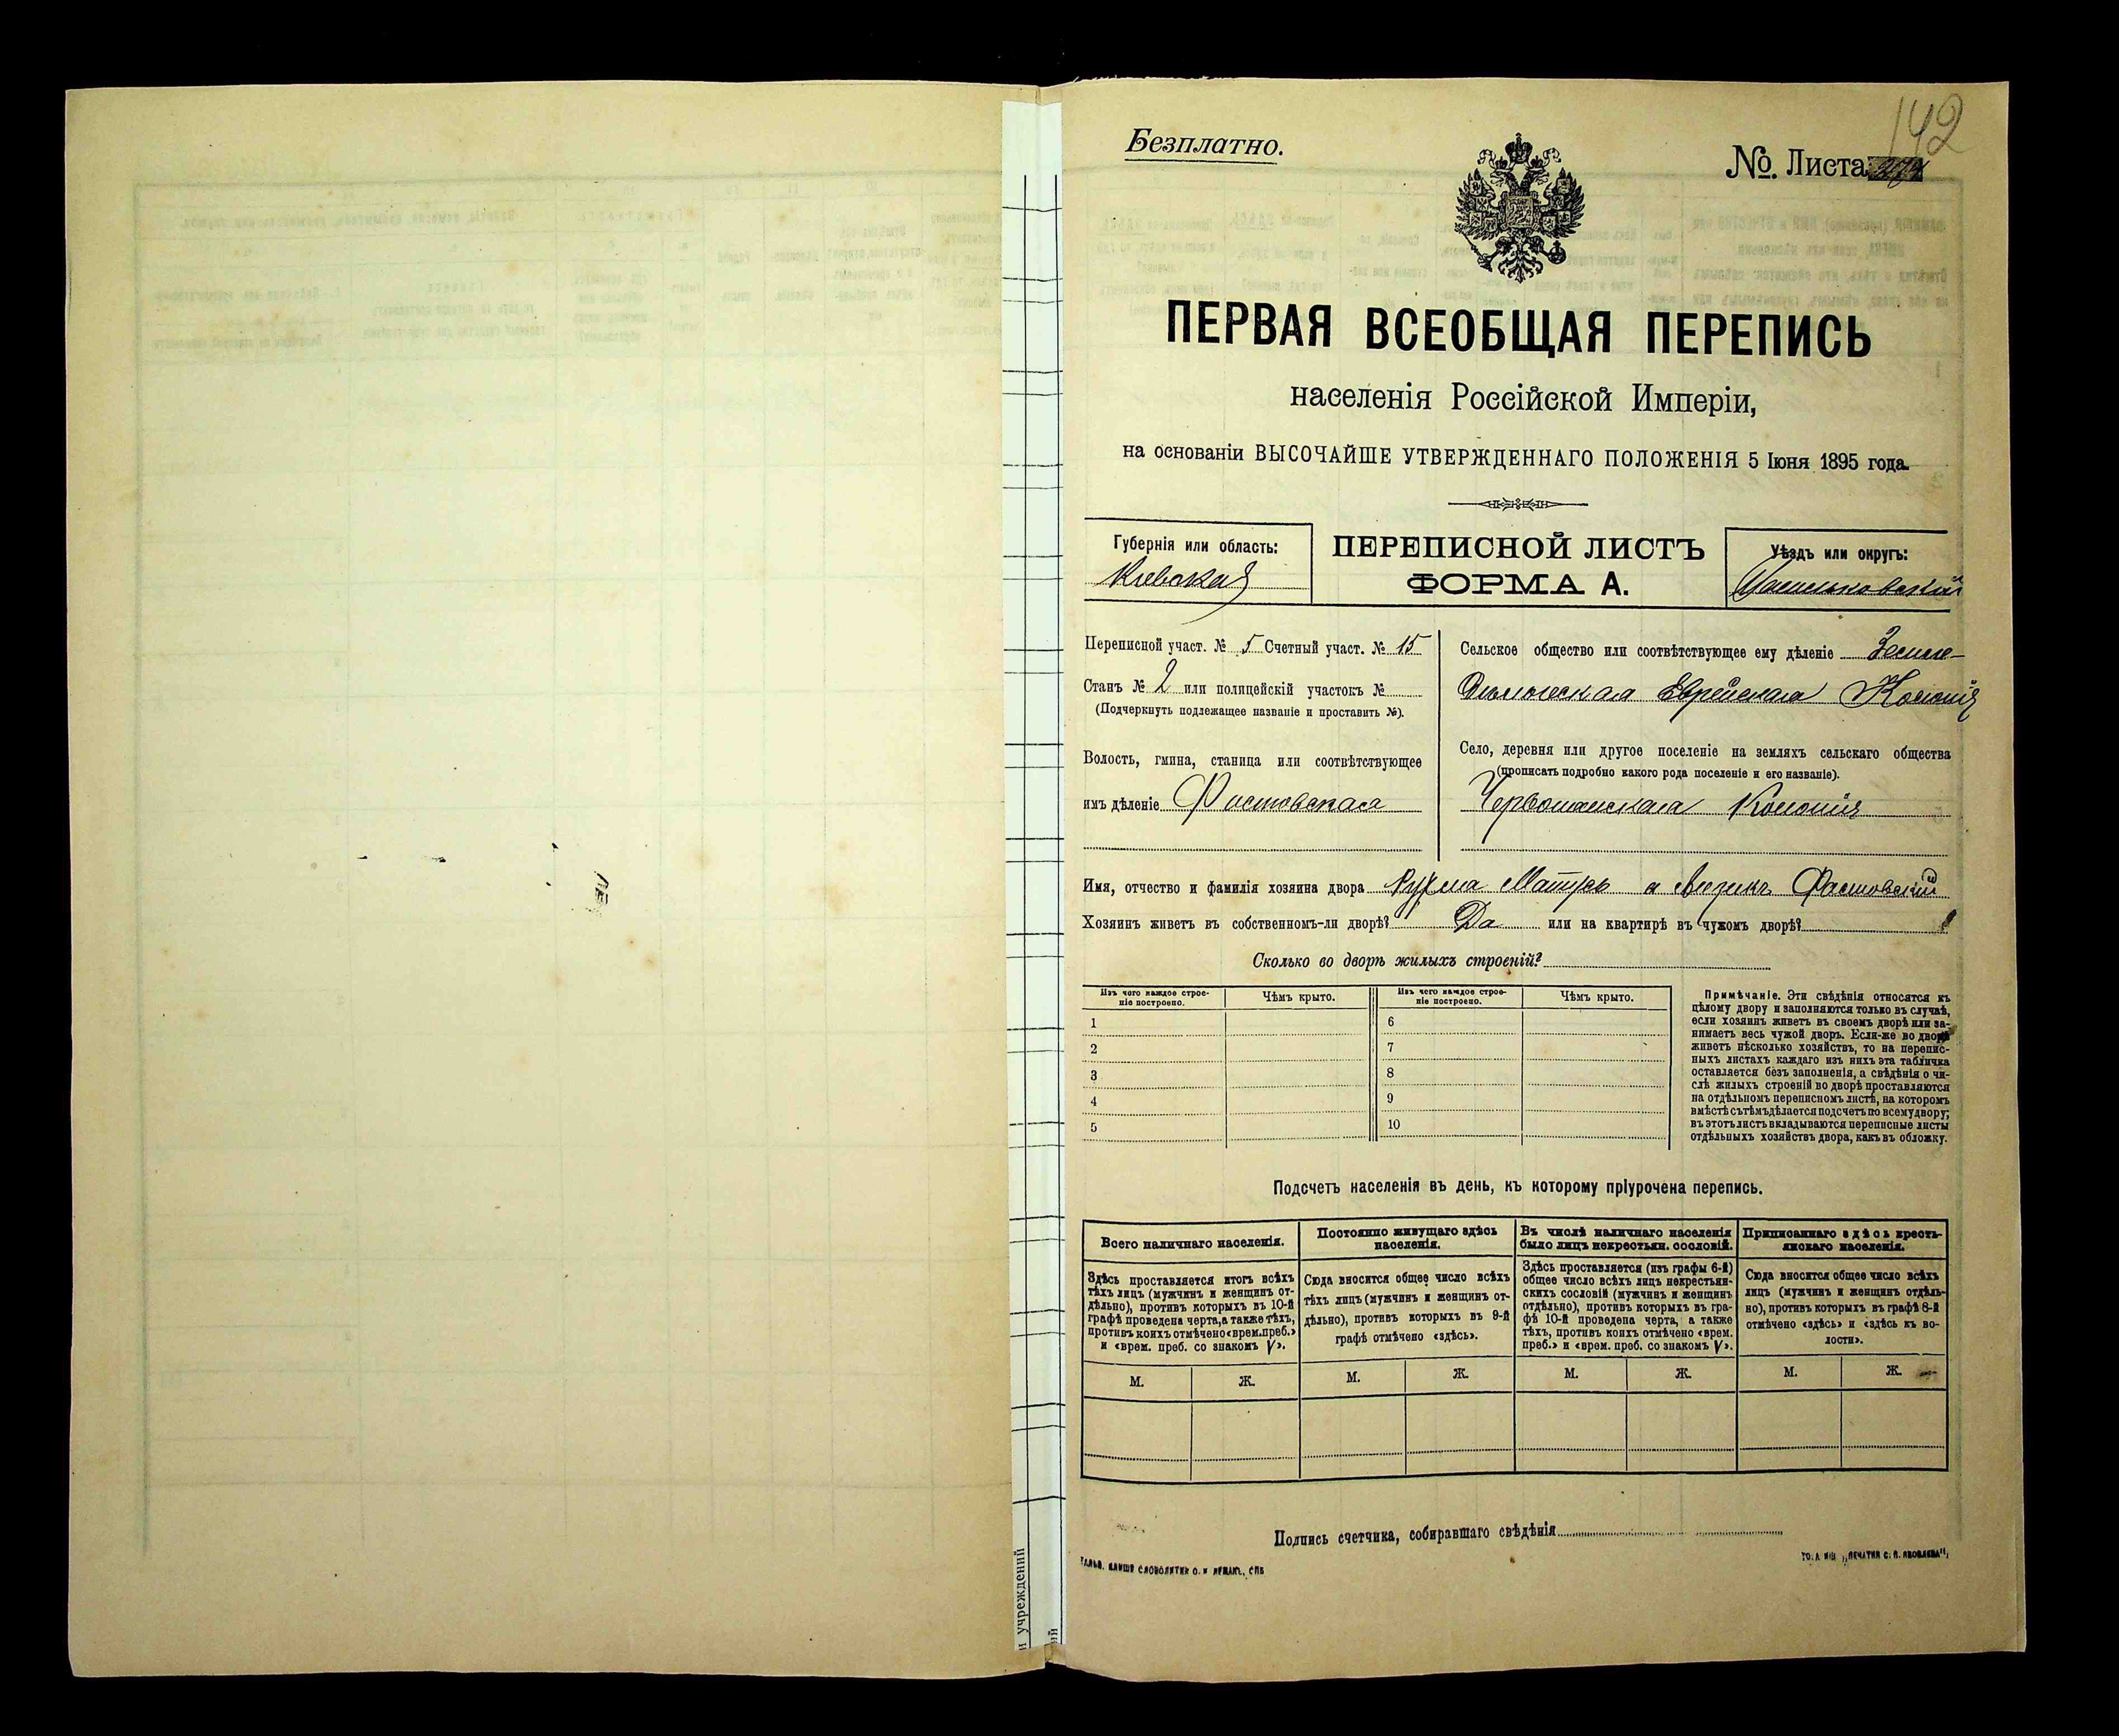 142
Безплатно.
№. Листа
ПЕРВАЯ ВСЕОБЩАЯ ПЕРЕПИСЬ
населенія Россійской Имперіи,
на основаніи ВЫСОЧАЙШЕ УТВЕРЖДЕННАГО ПОЛОЖЕНІЯ 5 Іюня 1895 года.
Губернія или область:
Кіевская
ПЕРЕПИСНОЙ ЛИСТЪ
ФОРМА А.
Уѣздъ или округъ:
Васильковскій
Переписной участ. № 5 Счетный участ. № 15
Станъ № 2 или полицейскій участокъ №
(Подчеркнуть подлежащее названіе и проставить №).
Волость, гмина, станица или соотвѣтствующее
имъ дѣленіе Фастовская
Сельское общество или соотвѣтствующее ему дѣленіе Земле-
дѣльческая Еврейская Колонія
Село, деревня или другое поселеніе на земляхъ сельскаго общества
(прописать подробно какого рода поселеніе и его названіе).
Червонянская Колонія
Имя, отчество и фамилія хозяина двора Фастовскій
Хозяинъ живетъ въ собственномъ-ли дворѣ? Да или на квартирѣ въ чужомъ дворѣ?
Сколько во дворѣ жилыхъ строеній?
Изъ чего каждое строе-
ніе построено.
Чѣмъ крыто.
Изъ чего каждое строе-
ніе построено.
Чѣмъ крыто.
1
6
2
7
3
8
4
9
5
10
Примѣчаніе. Эти свѣдѣнія относятся къ
цѣлому двору и заполняются только въ случаѣ,
если хозяинъ живетъ въ своемъ дворѣ или за-
нимаетъ весь чужой дворъ. Если-же во дворѣ
живетъ нѣсколько хозяйствъ, то на перепис-
ныхъ листахъ каждаго изъ нихъ эта табличка
оставляется безъ заполненія, а свѣдѣнія о чи-
слѣ жилыхъ строеній во дворѣ проставляются
на отдѣльномъ переписномъ листѣ, на которомъ
вмѣстѣ съ тѣмъ дѣлается подсчетъ по всему двору;
въ этотъ листъ вкладываются переписные листы
отдѣльныхъ хозяйствъ двора, какъ въ обложку.
Подсчетъ населенія въ день, къ которому пріурочена перепись.
Всего наличнаго населенія.
Здѣсь проставляется итогъ всѣхъ
тѣхъ лицъ (мужчинъ и женщинъ от-
дѣльно), противъ которыхъ въ 10-й
графѣ проведена черта, а также тѣхъ,
противъ коихъ отмѣчено «врем. преб.»
и «врем. преб. со знакомъ V».
Постоянно живущаго здѣсь
населенія.
Сюда вносится общее число всѣхъ
тѣхъ лицъ (мужчинъ и женщинъ от-
дѣльно), противъ которыхъ въ 9-й
графѣ отмѣчено «здѣсь».
Въ числѣ наличнаго населенія
было лицъ некрестьян. сословій.
Здѣсь проставляется (изъ графы 6-й)
общее число всѣхъ лицъ некрестьян-
скихъ сословій (мужчинъ и женщинъ
отдѣльно), противъ которыхъ въ гра-
фѣ 10-й проведена черта, а также
тѣхъ, противъ коихъ отмѣчено «врем.
преб.» и «врем. преб. со знакомъ V».
Приписаннаго здѣсь кресть-
янскаго населенія.
Сюда вносится общее число всѣхъ
лицъ (мужчинъ и женщинъ отдѣль-
но), противъ которыхъ въ графѣ 8-й
отмѣчено «здѣсь» и «здѣсь къ во-
лости».
М. Ж. М. Ж. М. Ж. М. Ж.
Подпись счетчика, собиравшаго свѣдѣнія
учреждений